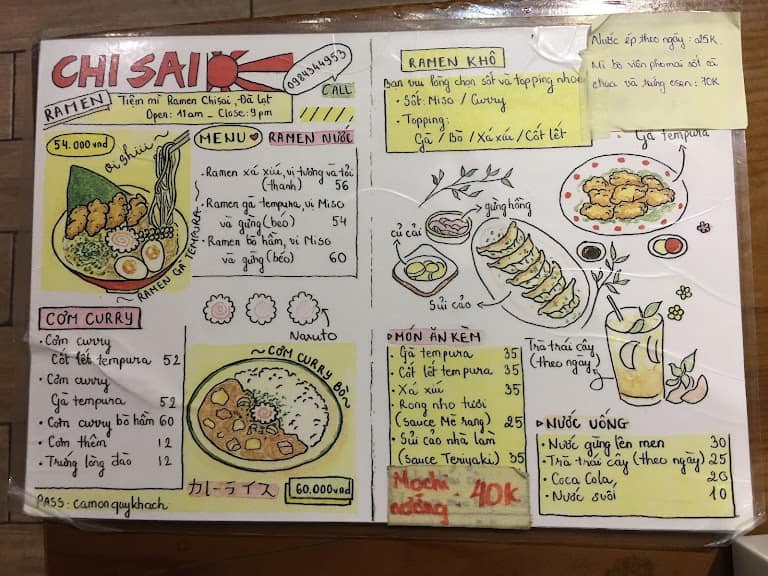 CHISAI
0984344953
CALL
RAMEN
Tiệm mì Ramen Chisai, Đà Lạt
Open: 11am - Close: 9pm
54.000 vnd
Oi shiii ~
~ RAMEN GÀ TEMPURA ~
MENU
RAMEN NƯỚC
Ramen xá xíu, vị tương và tỏi
(thanh) 56
Ramen gà tempura, vị Miso
và gừng (béo) 54
Ramen bò hầm, vị Miso
và gừng (béo) 60
Naruto
CƠM CURRY
Cơm curry
Cốt lết tempura 52
Cơm curry
Gà tempura 52
Cơm curry bò hầm 60
Cơm thêm 12
Trứng lòng đào 12
PASS: camonquykhach
~ CƠM CURRY BÒ ~
カレーライス
60.000 vnd
RAMEN KHÔ
Bạn vui lòng chọn sốt và topping nhóe
Sốt: Miso / Curry
Topping:
Gà / Bò / Xá xíu / Cốt lết
Nước ép theo ngày: 25K
Mì bò viên phomai sốt cà
chua và rừng osen: 70K
Gà tempura
gừng hồng
củ cải
Sủi cảo
Trà trái cây
(theo ngày)
MÓN ĂN KÈM
Gà tempura 35
Cốt lết tempura 35
Xá xíu 35
Rong nho tươi
(sauce Mè rang) 25
Sủi cảo nhà làm
(sauce Teriyaki) 35
Mochi
nướng: 40k
NƯỚC UỐNG
Nước gừng lên men 30
Trà trái cây (theo ngày) 25
Coca Cola 20
Nước suối 10